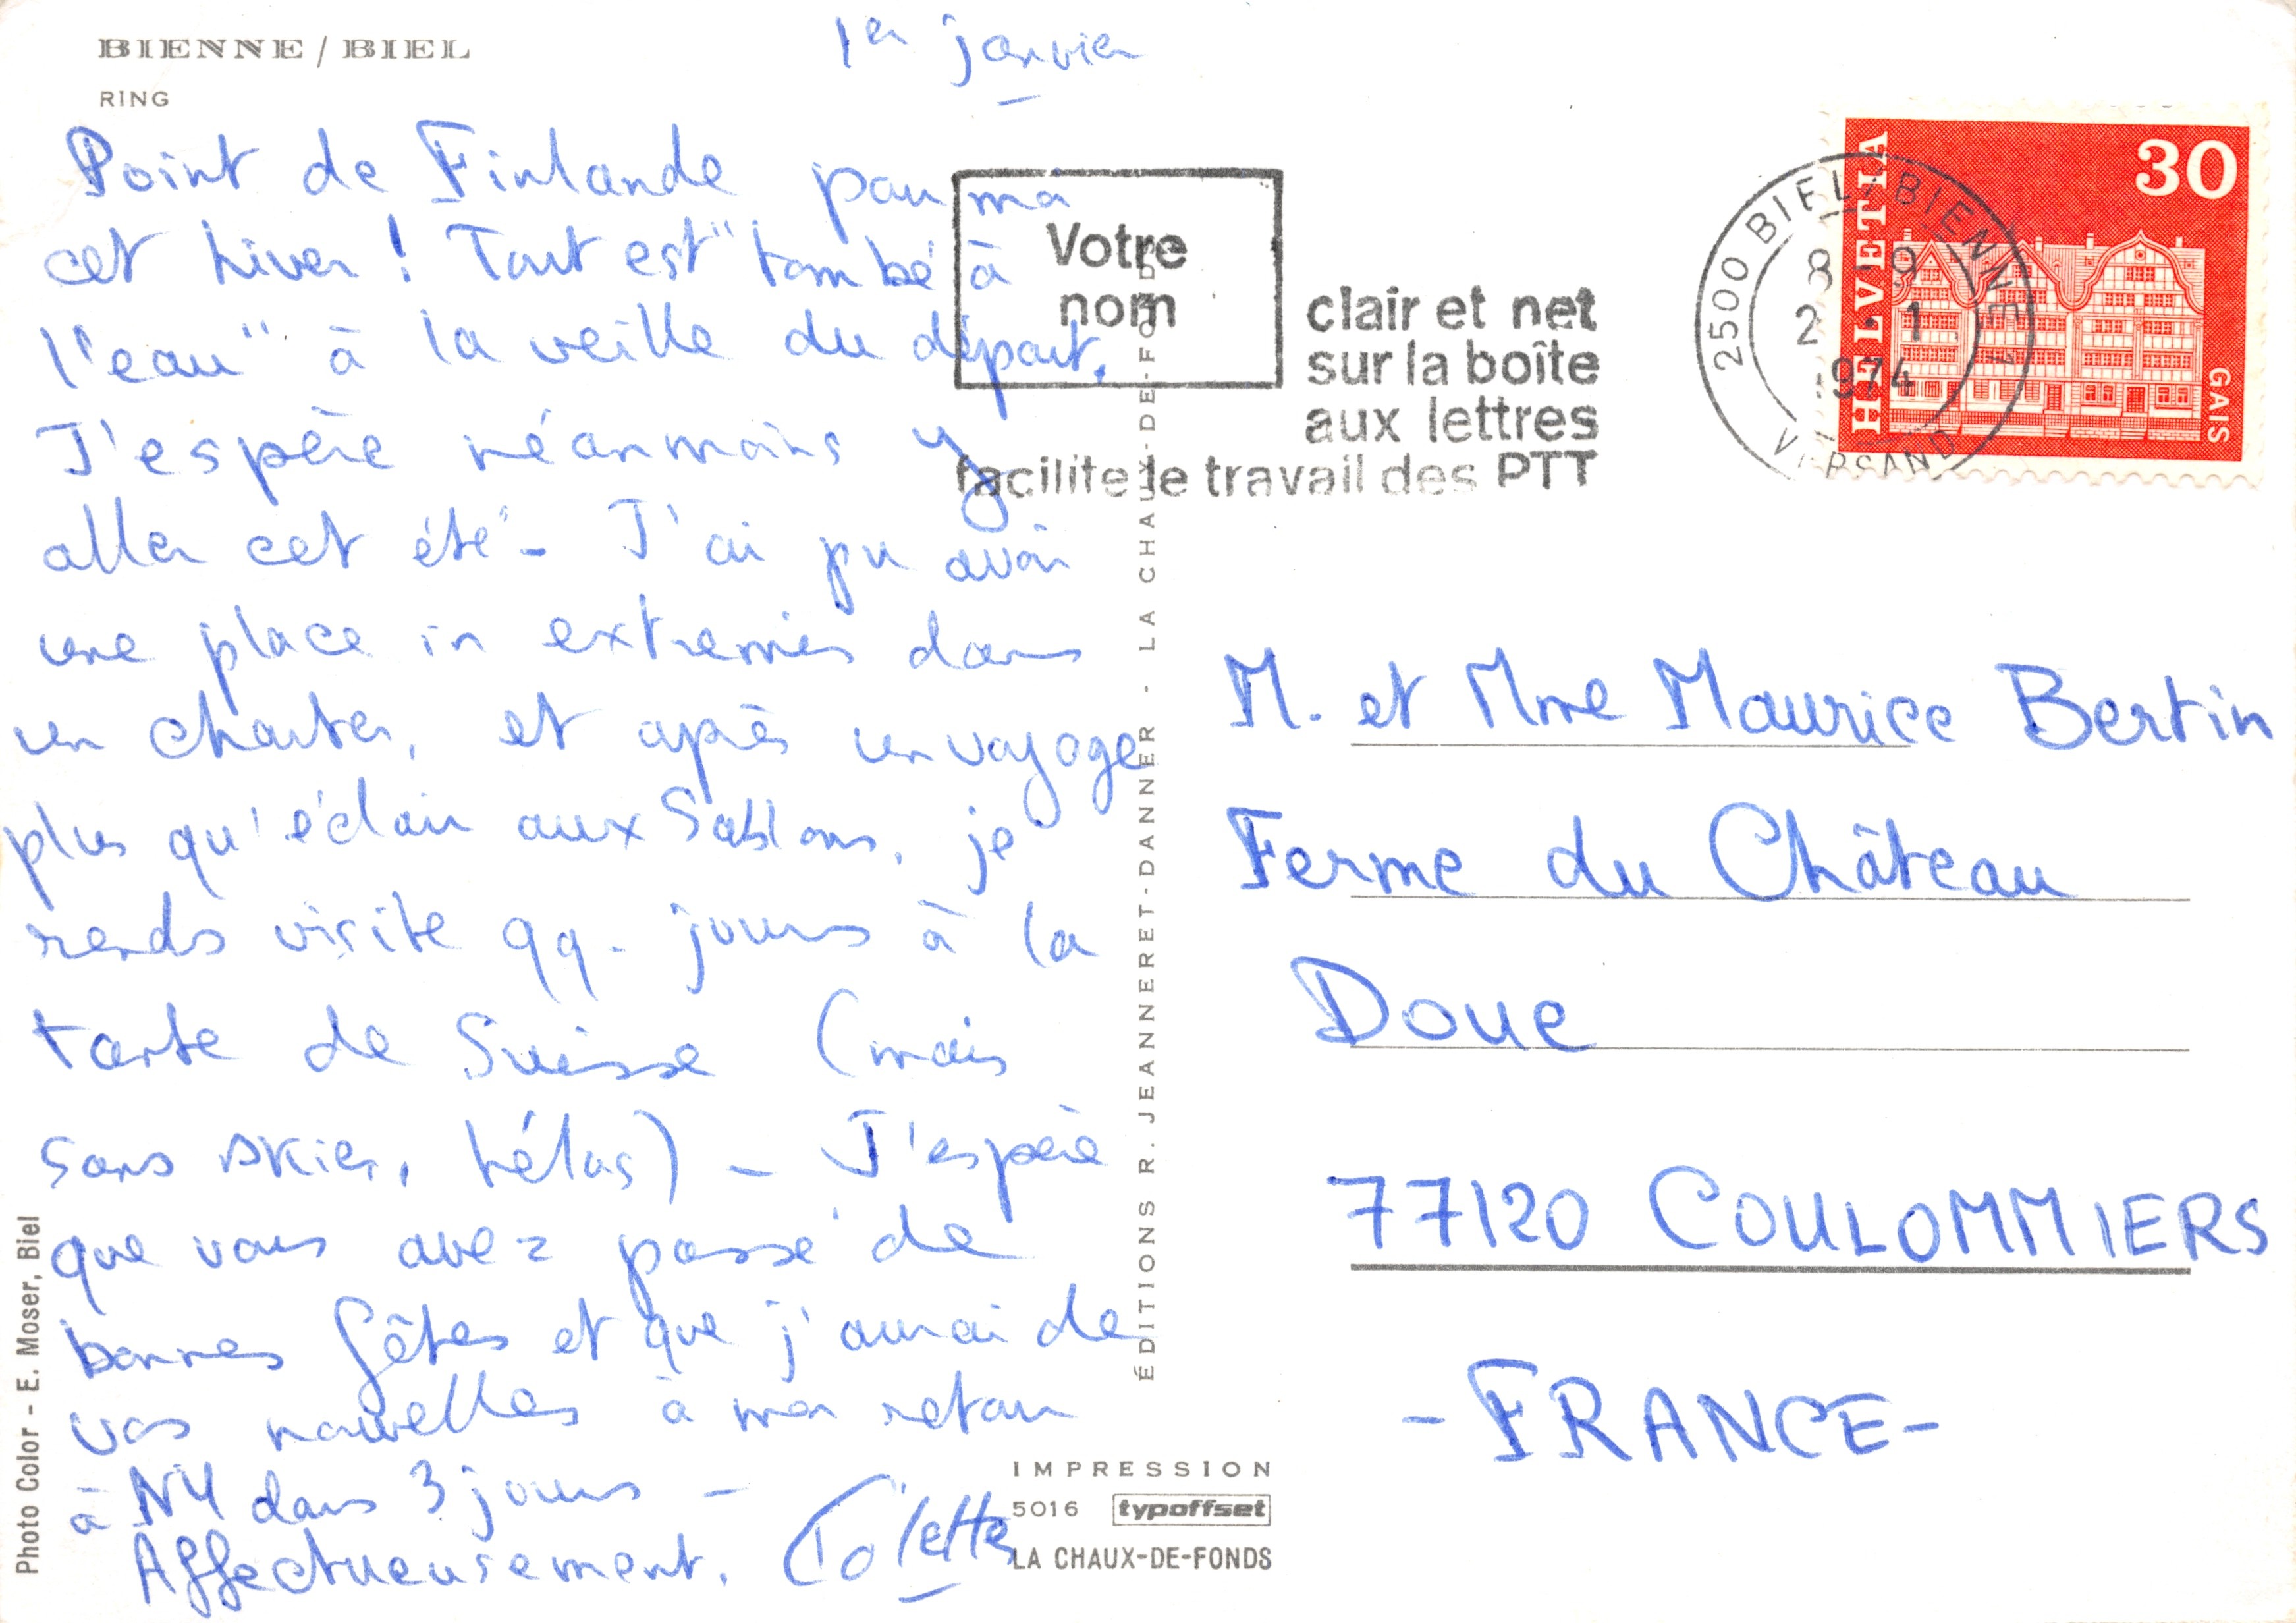 BIENNE / BIEL
RING
1er janvier
Point de Finlande pour moi
cet hiver ! Tout est "tombé à
l'eau" à la veille du départ.
J'espère néanmoins y
aller cet été - J'ai pu avoir
une place in extremis dans
un charter, et après un voyage
plus qu'éclair aux Sablons, je
rends visite qq. jours à la
tante de Suisse (mais
sans skier, hélas) - J'espère
que vous avez passé de
bonnes fêtes et que j'aurai de
vos nouvelles à mon retour
à NY dans 3 jours -
Affectueusement. Colette
Photo Color - E. Moser, Biel
ÉDITIONS R. JEANNERET-DANNER - LA CHAUX-DE-FONDS
IMPRESSION
5016 typoffset
LA CHAUX-DE-FONDS
Votre
nom
clair et net
sur la boîte
aux lettres
facilite le travail des PTT
2500 BIEL/BIENNE 1
8-9
2.1
1974
VERSAND
HELVETIA
30
GAIS
M. et Mme Maurice Bertin
Ferme du Château
Doue
77120 COULOMMIERS
-FRANCE-